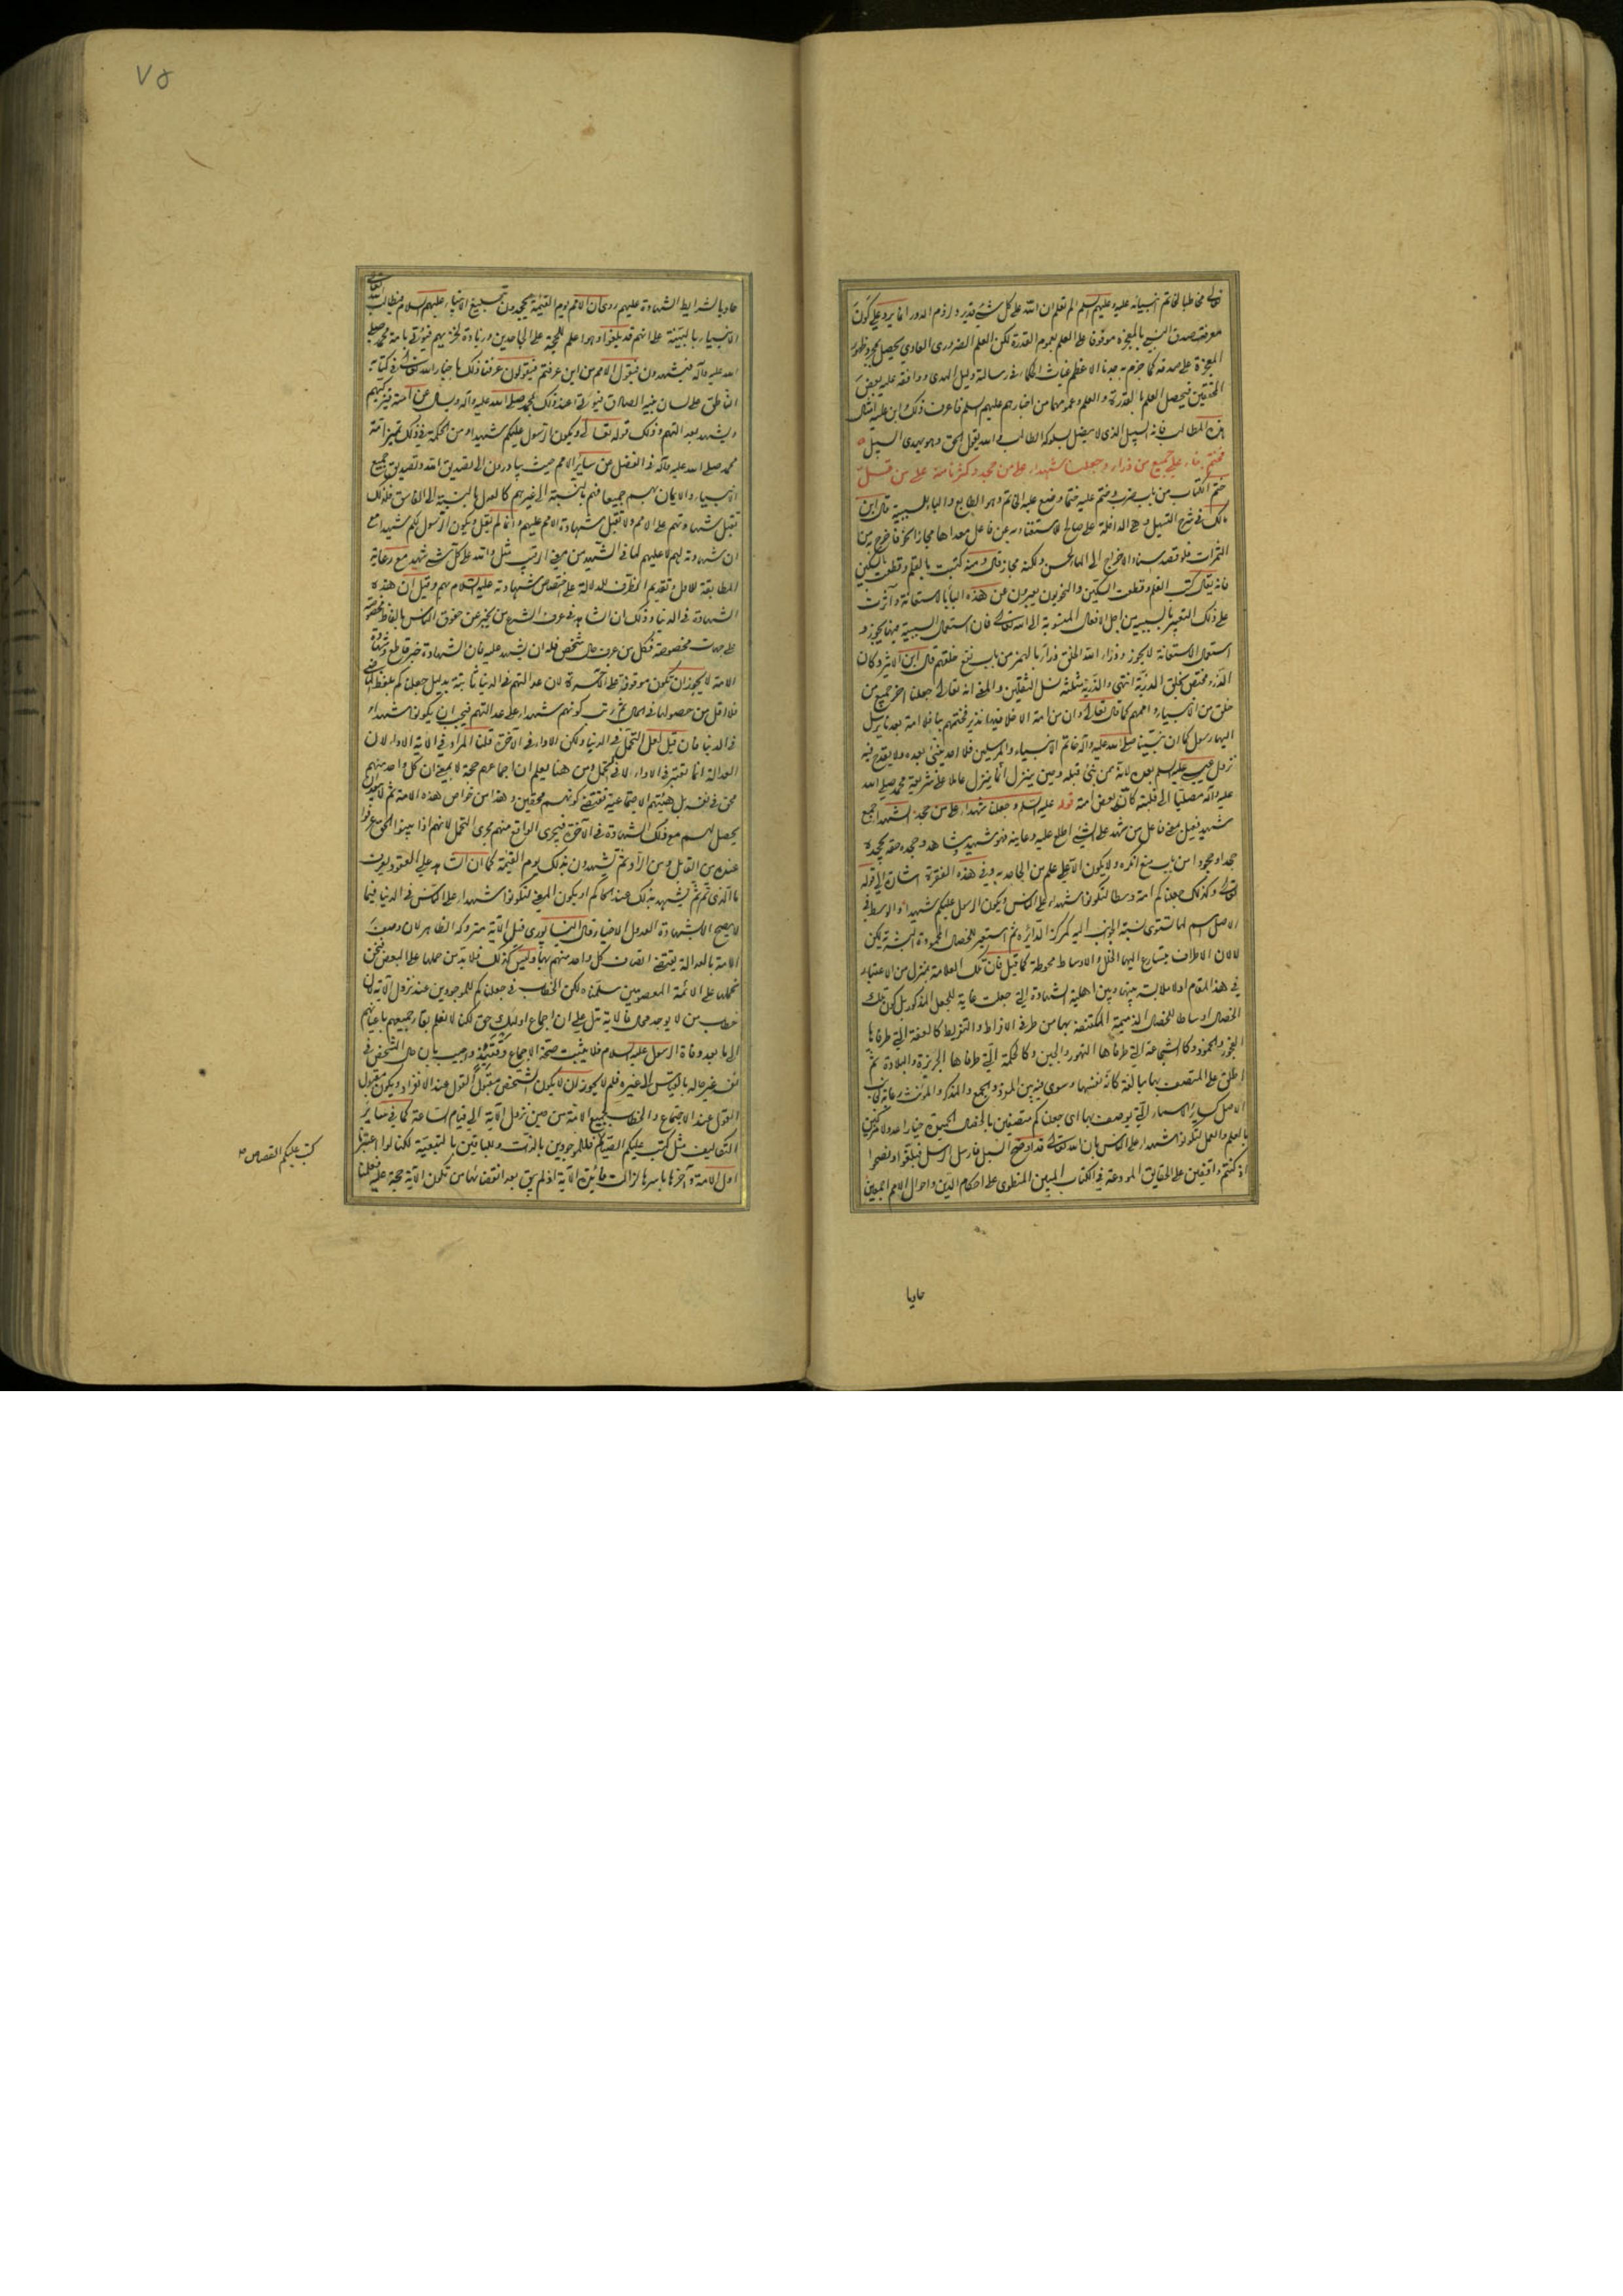 تعالى مخاطبا لخاتم انبيائه عليه وعليهم السلم الم تعلم ان الله على كل شئ قدير ولزوم الدور انما يرد على كون
معرفة صدق النبي بالمعجزة موقوفا على العلم بعموم القدرة لكن العلم الضروري العادي يحصل بمجرد ظهور
المعجزة على صدقه كما جزم به جدنا الاعظم غياث الحكماء في رسالة دليل الهدى ووافقه عليه بعض
المحققين فيحصل العلم بالقدرة والعلم وعمومهما من اخبارهم عليهم السلم فاعرف ذلك
هذه المطالب فانه السبيل الذي لا يضل بسلوكه الطالب والله يقول الحق وهو يهدي السبيل
فختم بنا على جميع من ذرأ وجعلنا شهداء على من جحد وكثرنا بمنه على من قل
ختم الكتاب من باب ضرب وختم عليه ختما وضع عليه الخاتم وهو الطابع والباء للسببية قال ابن
مالك في شرح التسهيل وهي الداخلة على صالح للاستغناء به عن فاعل معداها مجازا نحو فاخرج به من
الثمرات فلو قصد اسناد الاخراج الى الماء لحسن ولكنه مجاز قال ومنه كتبت بالقلم وقطعت بالسكين
فانه يقال كتب القلم وقطعت السكين والنحويون يعبرون عن هذه الباء بالاستعانة وآثرت
على ذلك التعبير بالسببية من اجل الافعال المنسوبة الى الله تعالى فان استعمال السببية فيها يجوز و
استعمال الاستعانة لا يجوز وذرأ الله الخلق ذرأ بالهمز من باب نفع خلقهم قال ابن الاثير وكان
الذرء مختص بخلق الذرية انتهى والذرية مثلثة نسل الثقلين والمعنى انه تعالى جعلنا آخر جميع من
خلق من الانبياء واممهم كما قال تعالى وان من امة الا خلا فيها نذير فختمهم بنا فلا امة بعدنا يرسل
اليها رسول كما ان نبينا صلى الله عليه وآله خاتم الانبياء والمرسلين فلا احد ينبئ بعده ولا يقدح فيه
نزول عيسى عليه السلم بعده لانه ممن نبئ قبله وحين ينزل انما ينزل عاملا على شريعة محمد صلى الله
عليه وآله مصليا الى قبلته كانه بعض امته قوله عليه السلم وجعلنا شهداء على من جحد الشهداء جمع
شهيد فعيل بمعنى فاعل من شهد على الشئ اطلع عليه وعاينه فهو شهيد وشاهد وجحده حقه يجحده
جحدا وجحودا من باب منع انكره ولا يكون الا على علم من الجاحد به وفي هذه الفقرة اشارة الى قوله
تعالى وكذلك جعلناكم امة وسطا لتكونوا شهداء على الناس ويكون الرسول عليكم شهيدا والوسط في
الاصل اسم لما تستوي نسبة الجوانب اليه كمركز الدائرة ثم استعير للخصال المحمودة البشرية لكن
لا لان الاطراف يتسارع اليها الخلل والاوساط محوطة كما قيل فان تلك العلامة بمعزل من الاعتبار
في هذا المقام اذ لا ملابسة بينها وبين اهلية الشهادة التي جعلت غاية للجعل المذكور بل لكون تلك
الخصال اوساطا للخصال الذميمة المكتنفة بها من طرفي الافراط والتفريط كالعفة التي طرفاها
الفجور والخمود وكالشجاعة التي طرفاها التهور والجبن وكالحكمة التي طرفاها الجربزة والبلادة ثم
اطلق على المتصف بها مبالغة كانه نفسها وسوى فيه بين المفرد والجمع والمذكر والمؤنث رعاية لجانب
الاصل كسائر الاسماء التي يوصف بها اي جعلناكم متصفين بالخصال الحميدة خيارا عدولا مزكين
بالعلم والعمل لتكونوا شهداء على الناس بان الله تعالى قد اوضح السبل فارسل الرسل فبلغوا ونصحوا
اذ كنتم واقفين على الحقايق المودعة في الكتاب المبين المنطوي على احكام الدين واحوال الامم اجمعين
حاويا
٧٥
حاويا لشرايط الشهادة عليهم روي ان الامم يوم القيمة يجحدون تبليغ الانبياء عليهم السلام فيطالب الله تعالى
الانبياء بالبينة على انهم قد بلغوا وهو اعلم للحجة على الجاحدين وزيادة لخزيهم فيؤتى بامة محمد صلى
الله عليه وآله فيشهدون فيقول الامم من اين عرفتم فيقولون عرفنا ذلك باخبار الله تعالى في كتابه
الناطق على لسان نبيه الصادق فيؤتى عند ذلك بمحمد صلى الله عليه وآله ويسأل عن امته فيزكيهم
ويشهد بعدالتهم وذلك قوله تعالى ويكون الرسول عليكم شهيدا ومن الحكمة في ذلك تمييز امة
محمد صلى الله عليه وآله في الفضل عن سائر الامم حيث يبادرون الى تصديق الله وتصديق جميع
الانبياء والايمان بهم جميعا فهم بالنسبة الى غيرهم كالعدل بالنسبة الى الفاسق فلذلك
تقبل شهادتهم على الامم ولا تقبل شهادة الامم عليهم وانما لم يقل ويكون الرسول لكم شهيدا مع
ان شهادته لهم لا عليهم لما في الشهيد من معنى الرقيب مثل والله على كل شئ شهيد مع رعاية
المطابقة للاول وتقديم الظرف للدلالة على اختصاص شهادته عليه السلام بهم وقيل ان هذه
الشهادة في الدنيا وذلك ان الشاهد في عرف الشرع من يخبر عن حقوق الناس بالفاظ مخصوصة
على جهات مخصوصة فكل من عرف حال شخص فله ان يشهد عليه فان الشهادة خبر قاطع وشهادة
الامة لا يجوز ان تكون موقوفة على الآخرة لان عدالتهم في الدنيا ثابتة بدليل جعلناكم بلفظ الماضي
فلا اقل من حصولها في الحال ثم رتب كونهم شهداء على عدالتهم فيجب ان يكونوا شهداء
في الدنيا فان قيل لعل التحمل في الدنيا ولكن الاداء في الآخرة قلنا المراد في الآية الاداء لان
العدالة انما تعتبر في الاداء لا في التحمل ومن هنا يعلم ان اجماعهم حجة لا بمعنى ان كل واحد منهم
محق في نفسه بل هيئتهم الاجتماعية تقتضي كونهم محقين وهذا من خواص هذه الامة ثم لا يبعد ان
يحصل لهم مع ذلك الشهادة في الآخرة فيجري الواقع منهم مجرى التحمل لانهم اذا بينوا الحق عرفوا
عنده من القابل ومن الراد ثم يشهدون بذلك يوم القيمة كما ان الشاهد على العقود يعرف
ما الذي تم ثم يشهد بذلك عند الحاكم او يكون المعنى لتكونوا شهداء على الناس في الدنيا فيما
لا يصح الا بشهادة العدول الاخيار وقال النيسابوري قيل الآية متروكة الظاهر لان وصف
الامة بالعدالة يقتضي اتصاف كل واحد منهم بها وليس كذلك فلا بد من حملها على البعض فنحن
نحملها على الائمة المعصومين سلمناه لكن الخطاب في جعلناكم للموجودين عند نزول الآية لان
خطاب من لا يوجد محال فالآية تدل على ان اجماع اولئك حق لكنا لا نعلم بقاء جميعهم باعيانهم
الى ما بعد وفاة الرسول عليه السلام فلا يثبت صحة الاجماع وقتئذ واجيب بان حال الشخص في
نفسه غير حاله بالقياس الى غيره فلم لا يجوز ان لا يكون الشخص مقبول القول عند الانفراد ويكون مقبول
القول عند الاجتماع والخطاب لجميع الامة من حين نزول الآية الى قيام الساعة كما في سائر
التكاليف مثل كتب عليكم الصيام فللموجودين بالذات وللباقين بالتبعية لكنا لو اعتبرنا
اول الامة وآخرها باسرها لزالت فائدة الآية اذ لم يبق بعد انقضائها من تكون الآية حجة عليه فعلمنا
كتب عليكم القصاص